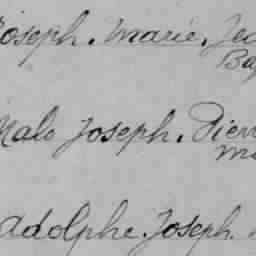 Joseph. Marie. Jea
Ba
Malo Joseph. Pierr
Ma
Adolphe. Joseph.